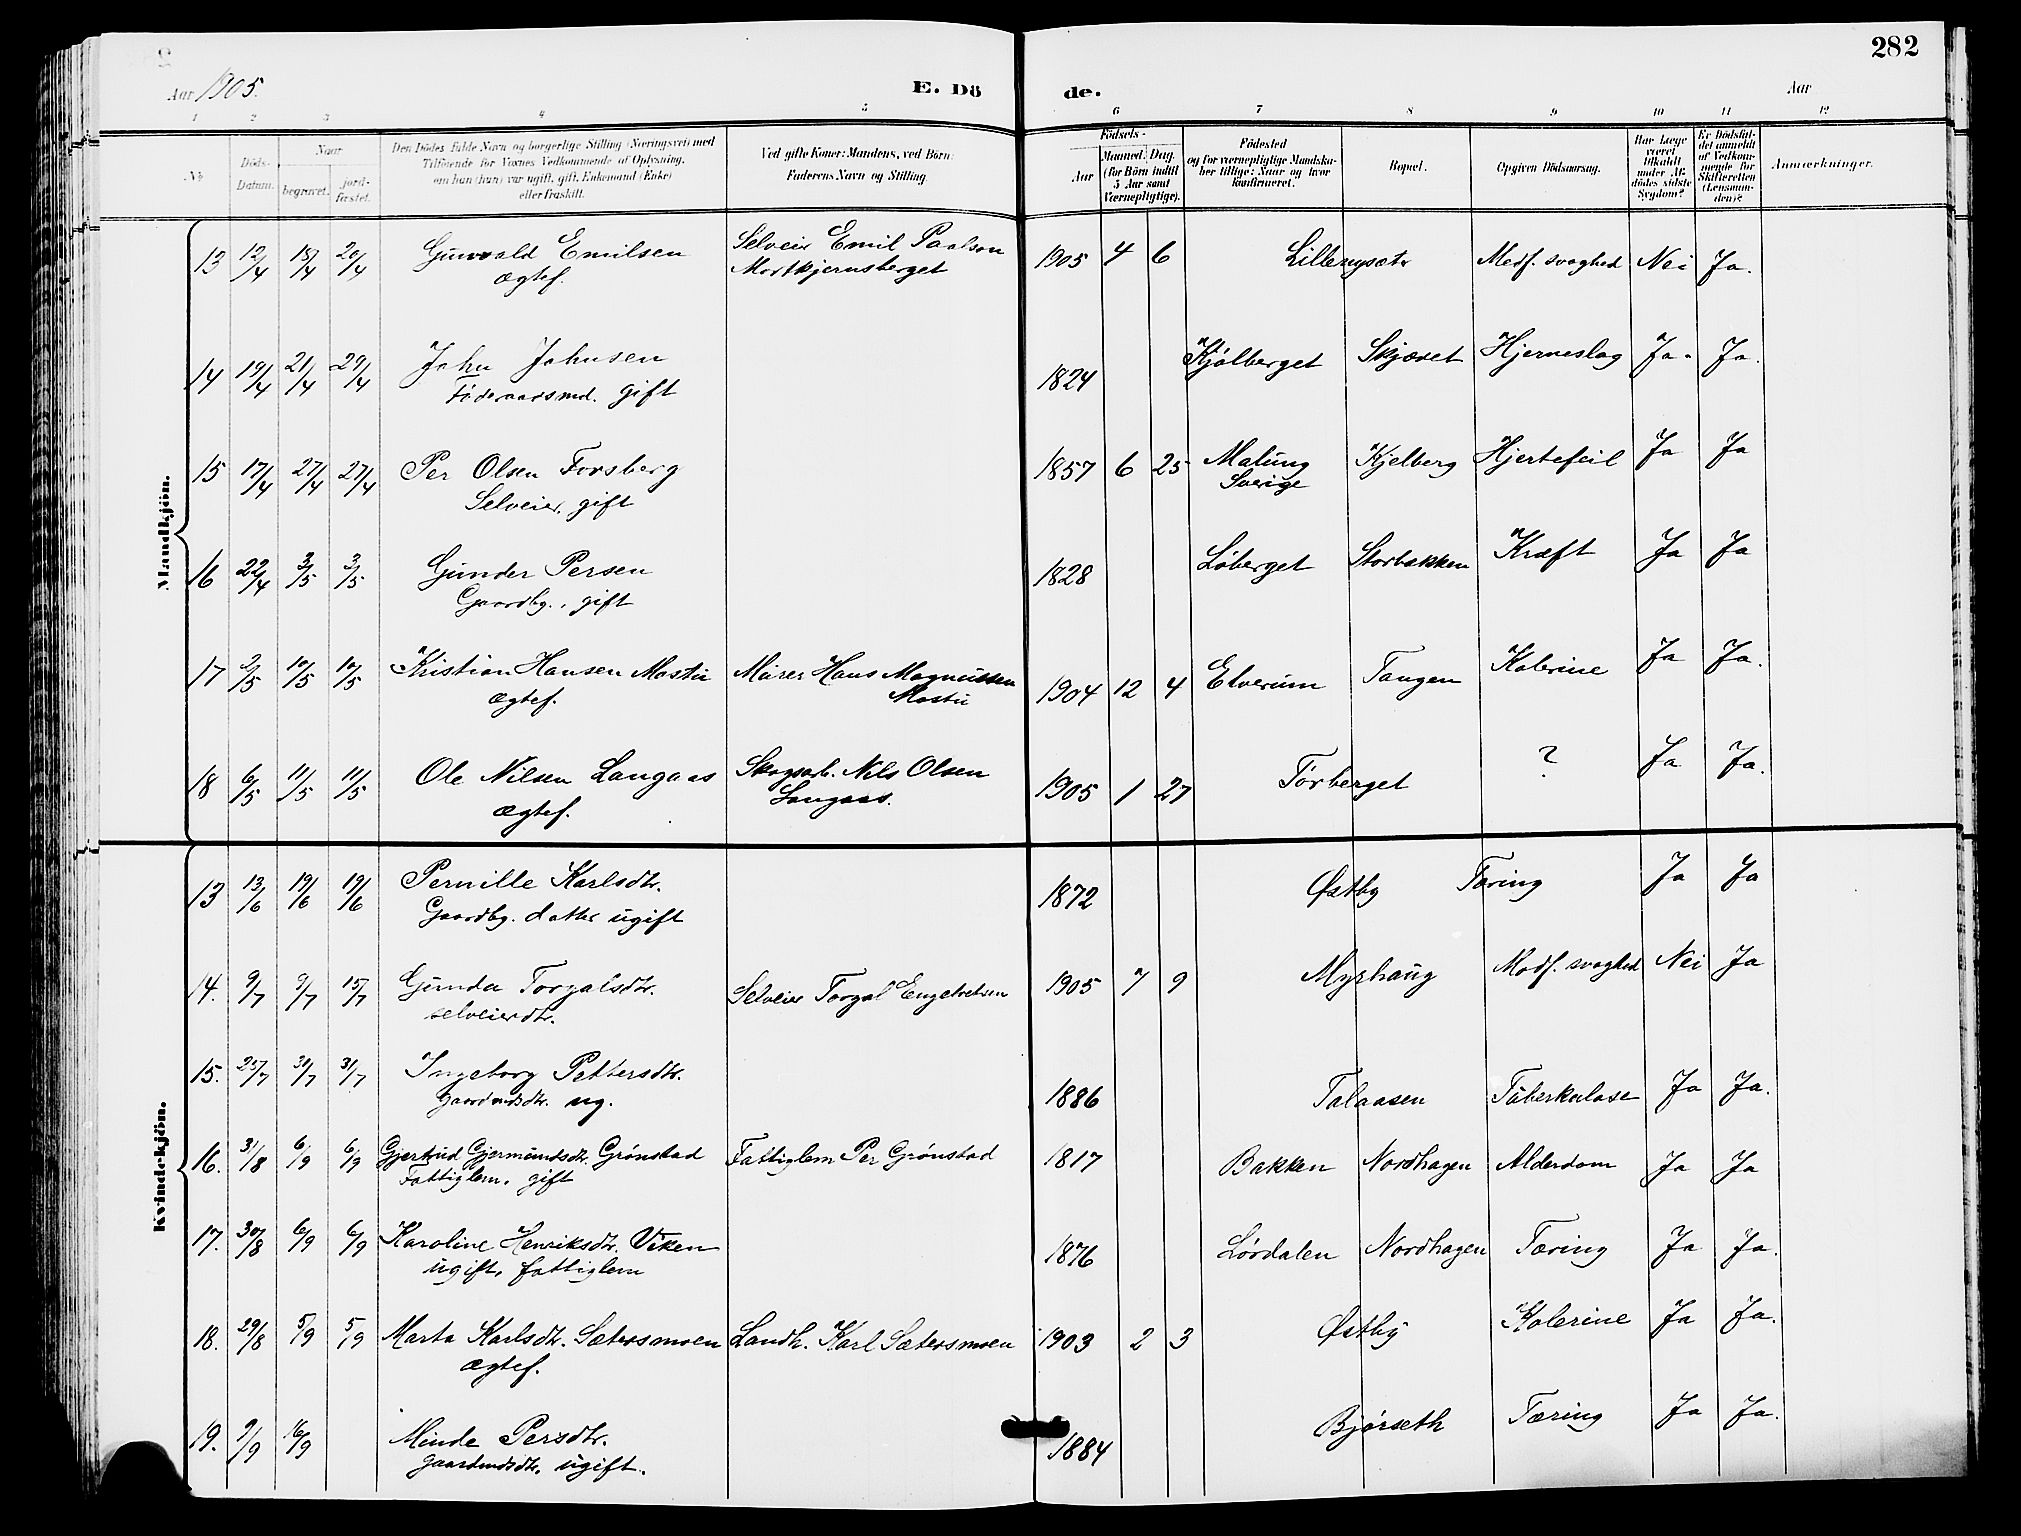 282
Aar 1905.
E. Dö de.
Aar
1 2 3 4 5 6 7 8 9 10 11 12
No
Döds-Datum.
Naar
begravet.
jord-fæstet.
Den Dödes fulde Navn og borgerlige Stilling (Næringsvei) med
Tilföiende för Voxnes Vedkommende af Oplysning,
om han (hun) var ugift, gift, Enkemand (Enke)
eller fraskilt.
Ved gifte Koner: Mandens, ved Börn:
Faderens Navn og Stilling.
Födsels-
Aar
Maaned. Dag.
(for Börn indtil
5 Aar samt
Værnepligtige).
Födested
og for værnepligtige Mandska-
ber tillige: Naar og hvor
konfirmeret.
Bopæl.
Opgiven Dödsaarsag.
Har Læge
været
tilkaldt
under Af-
dödes sidste
Sygdom?
Er Dödsfal-
det anmeldt
af Vedkom-
mende for
Skifteretten
(Lensman-
den)?
Anmærkninger.
Mandkjön.
13 12/4 18/4 20/4 Gunvald Emilsen Selveier Emil Paalsen 1905 4 6 Lillenysæter Medf. svaghed Nei Ja.
ægtef. Mortkjernsberget
14 19/4 21/4 29/4 John Johnsen 1824 Kjølberget Skjæret Hjerneslag Ja. Ja.
Føderaadsmd. gift
15 17/4 27/4 27/4 Per Olsen Forsberg 1857 6 25 Malung Kjelberg Hjertefeil Ja Ja
Selveier, gift Sverige
16 22/4 3/5 3/5 Gunder Persen 1828 Løberget Storbakken Kræft Ja Ja
Gaardbg., gift
17 2/5 10/5 10/5 Kristian Hansen Mostu Murer Hans Magnussen 1904 12 4 Elverum Tangen Kolerine Ja Ja.
ægtef. Mostu
18 6/5 11/5 11/5 Ole Nilsen Langaas Skogsarb. Nils Olsen 1905 1 27 Tørberget ? Ja Ja.
ægtef. Langaas.
Kvindekjön.
13 13/6 19/6 19/6 Pernille Karlsdtr. 1872 Østby Tæring Ja Ja
Gaardbg. datter ugift
14. 9/7 9/7 15/7 Gunda Torgalsdtr. Selveier Torgal Engebretsen 1905 7 9 Myrhaug Medf. svaghed Nei Ja
selveierdtr.
15. 25/7 31/7 31/7 Ingeborg Pettersdtr. 1886 Talaasen Tuberkulose Ja Ja.
Gaardmdsdtr. ug.
16. 31/8 6/9 6/9 Gjertrud Gjermundsdtr. Grønstad Fattiglem Per Grønstad 1817 Bakken Nordhagen Alderdom Ja Ja
Fattiglem, gift
17. 30/8 6/9 6/9 Karoline Henriksdtr. Viken 1876 Lørdalen Nordhagen Tæring Ja Ja.
ugift, fattiglem
18. 29/8 5/9 5/9 Marta Karlsdtr. Sætersmoen Landh. Karl Sætersmoen 1903 2 3 Østby Kolerine Ja Ja.
ægtef.
19. 9/9 16/9 Minde Persdtr. 1884 Bjørseth Tæring Ja Ja.
Gaardmdsdtr, ugift.